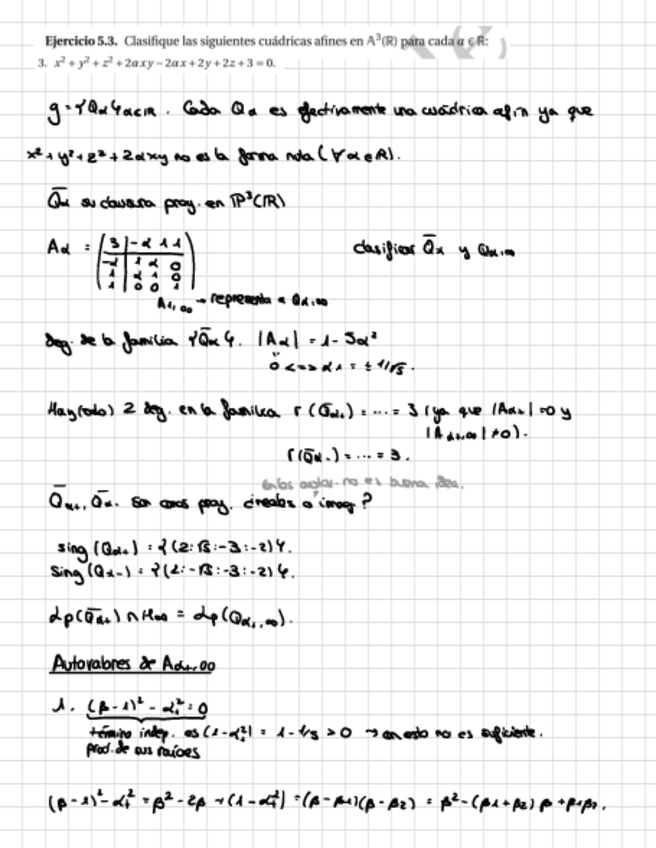 Ejercicio 5.3. Clasifique las siguientes cuádricas afines en A³(R) para cada α ∈ R:
3. x² + y² + z² + 2αxy − 2αx + 2y + 2z + 3 = 0.
g = {Qα}α∈R. Cada Qα es efectivamente una cuádrica afín ya que
x² + y² + z² + 2αxy no es la forma nula (∀α∈R).
Q̄α su clausura proy. en P³(R)
Aα = ( 3 | -α 1 1
-α | 1 α 0
1 | α 1 0
1 | 0 0 1 )
clasificar Q̄α y Qα,∞
→ representa a Qα,∞
deg. de la familia {Q̄α}. |Aα| = 1 - 3α²
0 <=> α± = ± 1/√3.
Hay (solo) 2 deg. en la familia r(Q̄α+) = ... = 3 (ya que |Aα+| = 0 y
|Aα+,∞| ≠ 0).
r(Q̄α-) = ... = 3.
no es buena idea.
Q̄α+, Q̄α- son conos proy. ¿reales o imag?
sing (Qα+) = {(2:√3:-3:-2)}.
Sing (Qα-) = {(2:-√3:-3:-2)}.
∩ H∞ =
Autovalores de Aα+,∞
1. (β-1)² - α+² = 0
término indep. es (1-α+²) = 1 - 1/3 > 0 → con esto no es suficiente.
prod. de sus raíces
(β-1)² - α+² = β² - 2β + (1-α+²) = (β-β1)(β-β2) = β² - (β1+β2)β + β1β2.